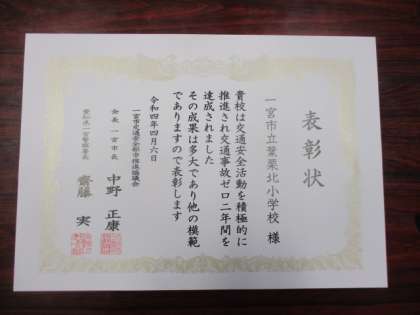 表彰状
一宮市立葉栗北小学校 様
貴校は交通安全活動を積極的に
推進され交通事故ゼロ二年間を
達成されました
その成果は多大であり他の模範
でありますので表彰します
令和四年四月六日
一宮市交通安全都市推進協議会
会長 一宮市長 中野 正康
愛知県一宮警察署長 齋藤 実